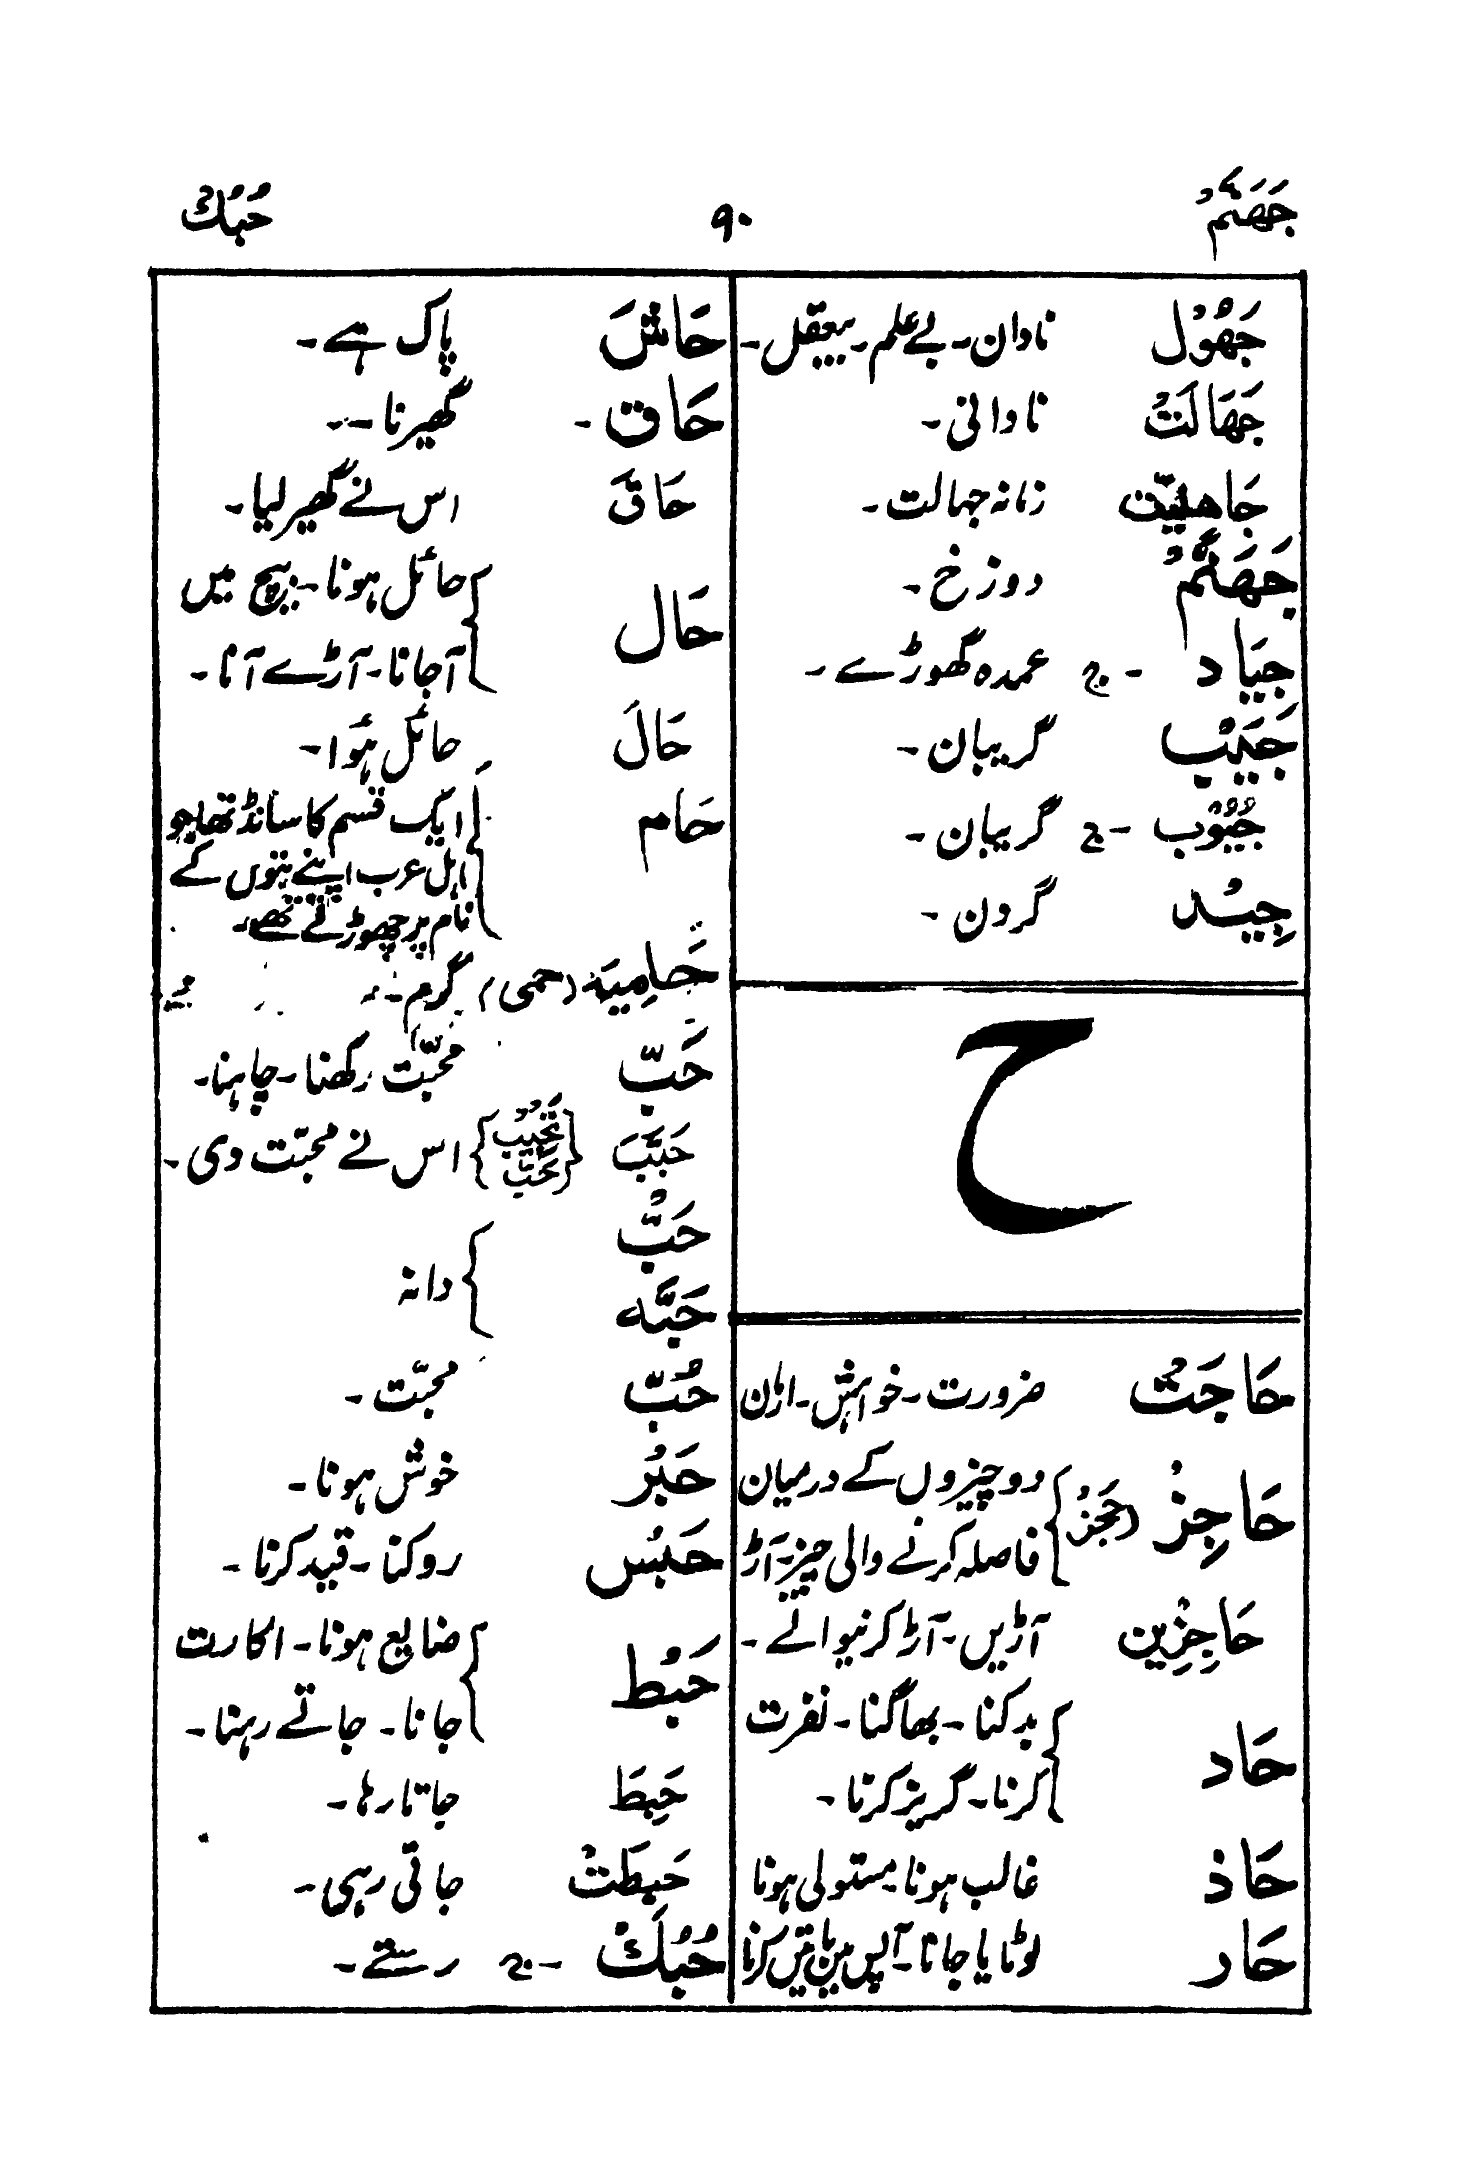 جَهَنَّمُ ۹۰ حُبُكٌ
جَهُوْل نادان۔ بے علم۔ بیعقل۔
جَهَالَتْ نادانی۔
جَاهِلِيَّت زمانہ جہالت۔
جَهَنَّمُ دوزخ۔
جِيَاد ۔ ج عمدہ گھوڑے۔
جَيْب گریبان۔
جُيُوْب ۔ ج گریبان۔
جِيْد گردن۔
ح
حَاجَتْ ضرورت۔ خواہش۔ ارمان
حَاجِزْ (حَجْزُ) { دو چیزوں کے درمیان
فاصلہ کرنے والی چیز۔ آڑ
حَاجِزِيْن آڑیں۔ آڑ کرنیوالے۔
حَاد { بدکنا۔ بھاگنا۔ نفرت
کرنا۔ گریز کرنا۔
حَاذ غالب ہونا۔ مستولی ہونا
حَار لوٹایا جانا۔ آپس میں باتیں کرنا
حَاشَ پاک ہے۔
حَاق۔ گھیرنا۔
حَاقَ اس نے گھیر لیا۔
حَال { حائل ہونا۔ بیچ میں
آجانا۔ آڑے آنا۔
حَالَ حائل ہُوا۔
حَام { ایک قسم کا سانڈ تھا جو
اہل عرب اپنے بتوں کے
نام پر چھوڑتے تھے۔
حَامِيَة (حمى) گرم۔
حَبّ محبّت رکھنا۔ چاہنا۔
حَبَّبَ {تَحْبِيْبُ حَبّ} اس نے محبّت دی۔
حَبّْ
حَبَّه } دانہ
حُبّ محبّت۔
حَبْر خوش ہونا۔
حَبْس روکنا۔ قید کرنا۔
حَبْط { ضایع ہونا۔ اکارت
جانا۔ جاتے رہنا۔
حَبِطَ جاتا رہا۔
حَبِطَتْ جاتی رہی۔
حُبُكٌ ۔ ج رستے۔